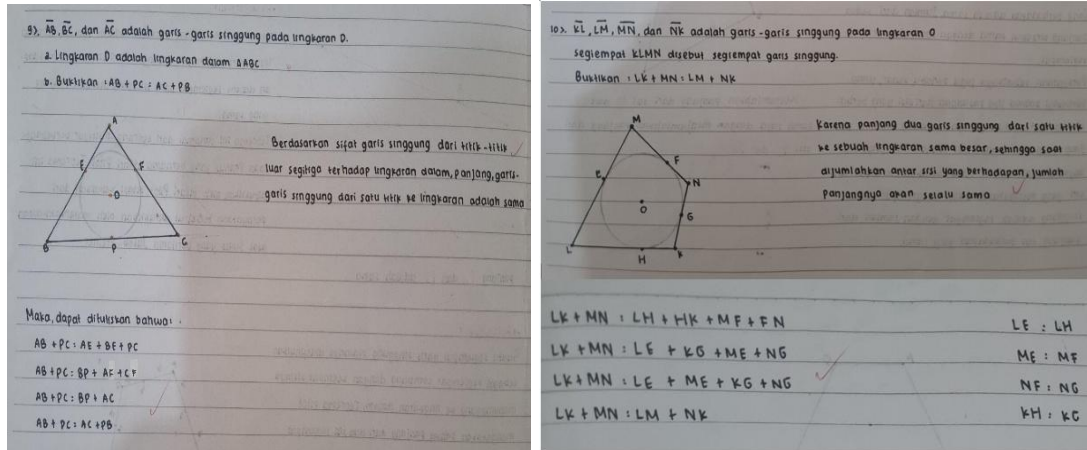 9). AB, BC, dan AC adalah garis-garis singgung pada lingkaran D.
a. Lingkaran D adalah lingkaran dalam △ABC
b. Buktikan : AB + PC = AC + PB
A
E
F
O
B
P
C
Berdasarkan sifat garis singgung dari titik-titik
luar segitiga terhadap lingkaran dalam, panjang, garis-
garis singgung dari satu titik ke lingkaran adalah sama
Maka, dapat dituliskan bahwa :
AB + PC : AE + BE + PC
AB + PC : BP + AF + CF
AB + PC : BP + AC
AB + PC : AC + PB
10). KL, LM, MN, dan NK adalah garis-garis singgung pada lingkaran O
segiempat KLMN disebut segiempat garis singgung.
Buktikan : LK + MN : LM + NK
M
F
E
N
O
G
L
H
K
Karena panjang dua garis singgung dari satu titik
ke sebuah lingkaran sama besar, sehingga saat
dijumlahkan antar sisi yang berhadapan, jumlah
panjangnya akan selalu sama
LK + MN : LH + HK + MF + FN
LK + MN : LE + KG + ME + NG
LK + MN : LE + ME + KG + NG
LK + MN : LM + NK
LE : LH
ME : MF
NF : NG
KH : KG